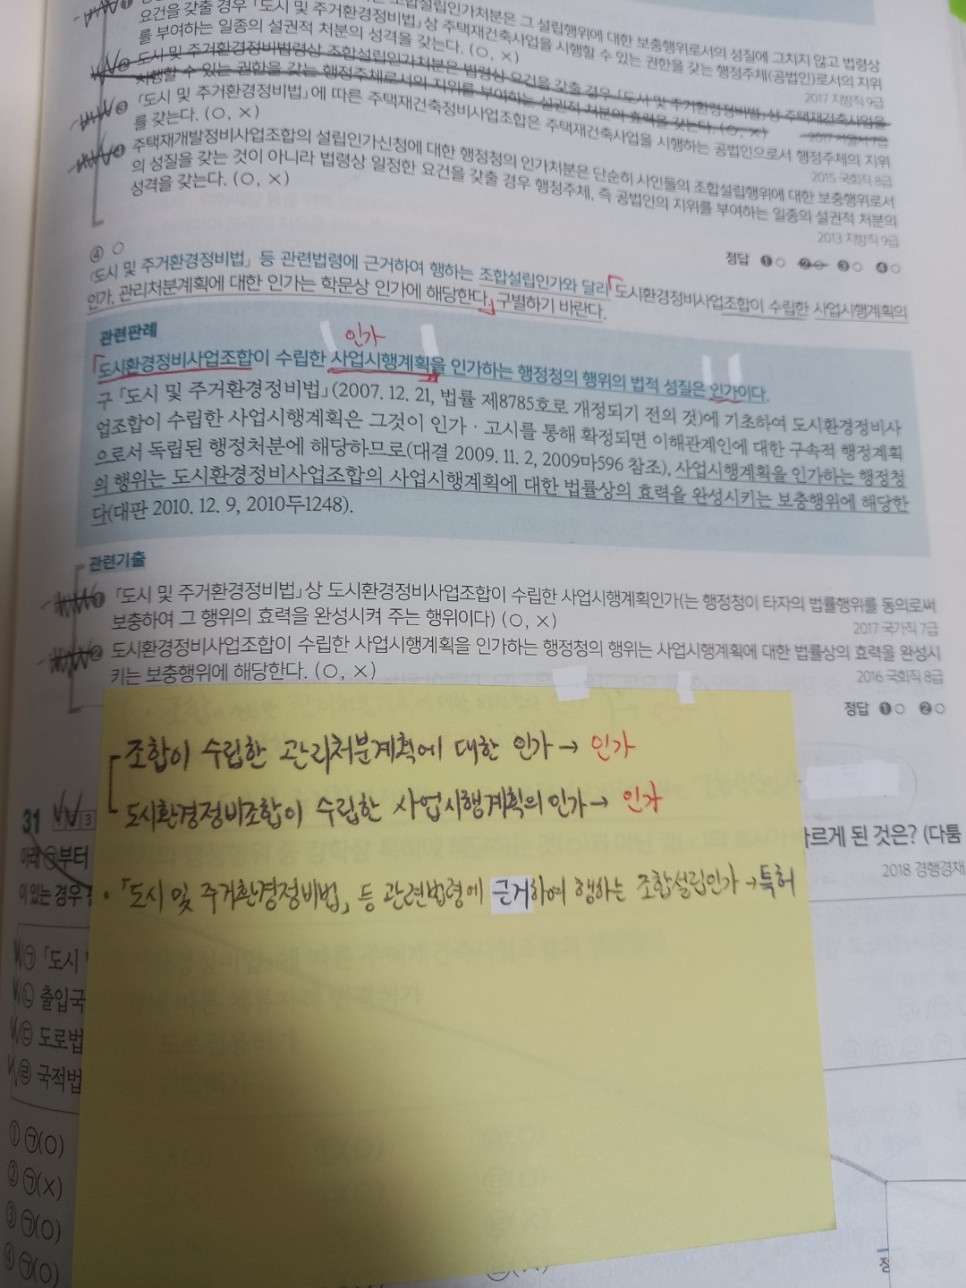 조합설립인가처분은 그 설립행위에 대한 보충행위로서의 성질에 그치지 않고 법령상
요건을 갖출 경우 「도시 및 주거환경정비법」상 주택재건축사업을 시행할 수 있는 권한을 갖는 행정주체(공법인)로서의 지위
를 부여하는 일종의 설권적 처분의 성격을 갖는다. (○, ×)
2017 지방직 9급
❷ 도시 및 주거환경정비법령상 조합설립인가처분은 법령상 요건을 갖출 경우 「도시 및 주거환경정비법」상 주택재건축사업을
시행할 수 있는 권한을 갖는 행정주체로서의 지위를 부여하는 설권적 처분의 효력을 갖는다. (○, ×)
2017 서울시 7급
❸ 「도시 및 주거환경정비법」에 따른 주택재건축정비사업조합은 주택재건축사업을 시행하는 공법인으로서 행정주체의 지위
를 갖는다. (○, ×)
2015 국회직 8급
❹ 주택재개발정비사업조합의 설립인가신청에 대한 행정청의 인가처분은 단순히 사인들의 조합설립행위에 대한 보충행위로서
의 성질을 갖는 것이 아니라 법령상 일정한 요건을 갖출 경우 행정주체, 즉 공법인의 지위를 부여하는 일종의 설권적 처분의
성격을 갖는다. (○, ×)
2013 지방직 9급
정답 ❶○ ❷○ ❸○ ❹○
④ ○
「도시 및 주거환경정비법」 등 관련법령에 근거하여 행하는 조합설립인가와 달리 도시환경정비사업조합이 수립한 사업시행계획의
인가, 관리처분계획에 대한 인가는 학문상 인가에 해당한다. 구별하기 바란다.
관련판례
인가
도시환경정비사업조합이 수립한 사업시행계획을 인가하는 행정청의 행위의 법적 성질은 인가이다.
구 「도시 및 주거환경정비법」(2007. 12. 21, 법률 제8785호로 개정되기 전의 것)에 기초하여 도시환경정비사
업조합이 수립한 사업시행계획은 그것이 인가 · 고시를 통해 확정되면 이해관계인에 대한 구속적 행정계획
으로서 독립된 행정처분에 해당하므로(대결 2009. 11. 2, 2009마596 참조), 사업시행계획을 인가하는 행정청
의 행위는 도시환경정비사업조합의 사업시행계획에 대한 법률상의 효력을 완성시키는 보충행위에 해당한
다(대판 2010. 12. 9, 2010두1248).
관련기출
❶ 「도시 및 주거환경정비법」상 도시환경정비사업조합이 수립한 사업시행계획인가(는 행정청이 타자의 법률행위를 동의로써
보충하여 그 행위의 효력을 완성시켜 주는 행위이다) (○, ×)
2017 국가직 7급
❷ 도시환경정비사업조합이 수립한 사업시행계획을 인가하는 행정청의 행위는 사업시행계획에 대한 법률상의 효력을 완성시
키는 보충행위에 해당한다. (○, ×)
2016 국회직 8급
정답 ❶○ ❷○
조합이 수립한 관리처분계획에 대한 인가 → 인가
도시환경정비조합이 수립한 사업시행계획의 인가 → 인가
• 「도시 및 주거환경정비법」 등 관련법령에 근거하여 행하는 조합설립인가 → 특허
31
바르게 된 것은? (다툼
2018 경행경채
아래 ㉠부터
이 있는 경우
㉠ 「도시
㉡ 출입국
㉢ 도로법
㉣ 국적법
① ㉠(○)
② ㉠(×)
③ ㉠(○)
④ ㉠(○)